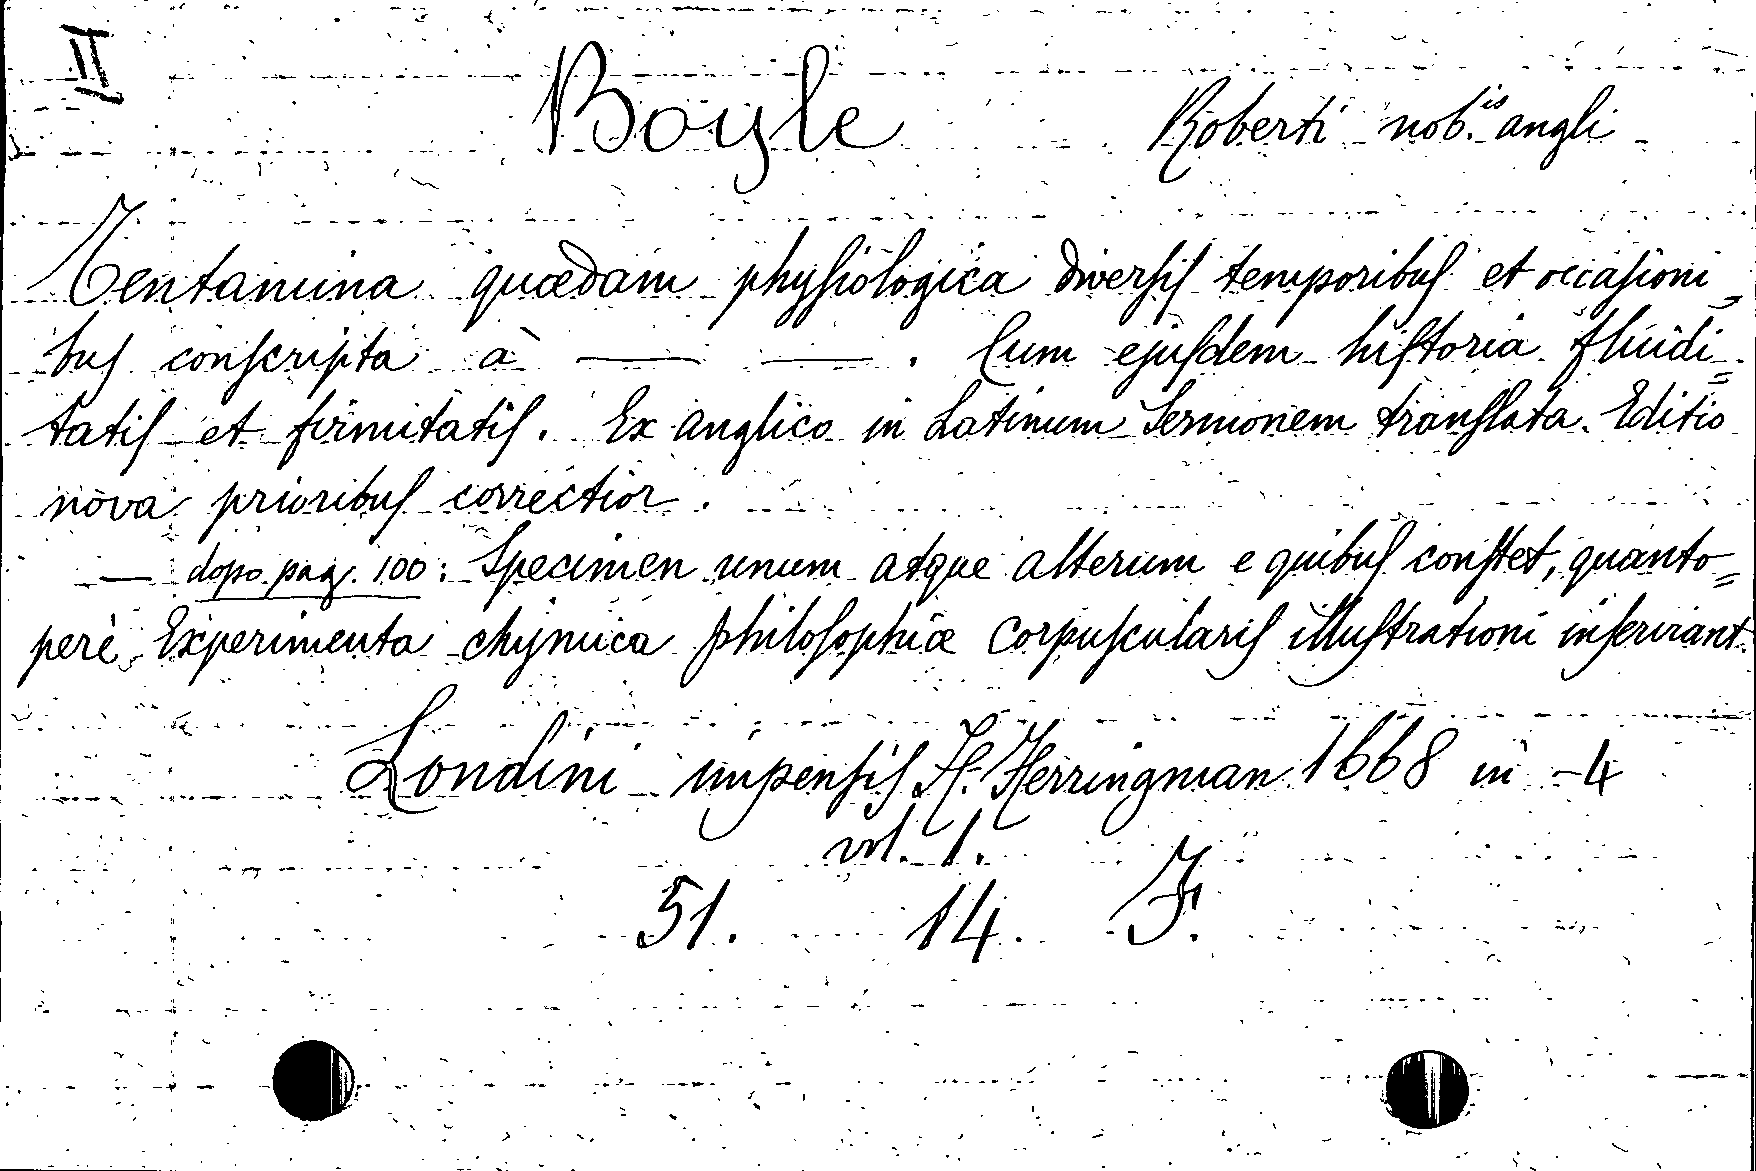 II
Boyle Roberti nob.is angli
Tentamina quædam phyſiologica diverſiſ temporibuſ et occaſioni„
buſ conſcripta à —— ——. Cum ejuſdem hiſtoria fluidi=
tatiſ et firmitatiſ. Ex anglico in Latinum Sermonem tranſlata. Editio
nova prioribuſ correctior.
— dopo pag. 100: Specimen unum atque alterum e quibuſ conſtet, quanto=
perè Experimenta chymica philoſophiæ corpuſculariſ illuſtrationi inſerviant.
Londini impenſiſ H. Herringman 1668 in -4
vol. 1.
51. 14. F.